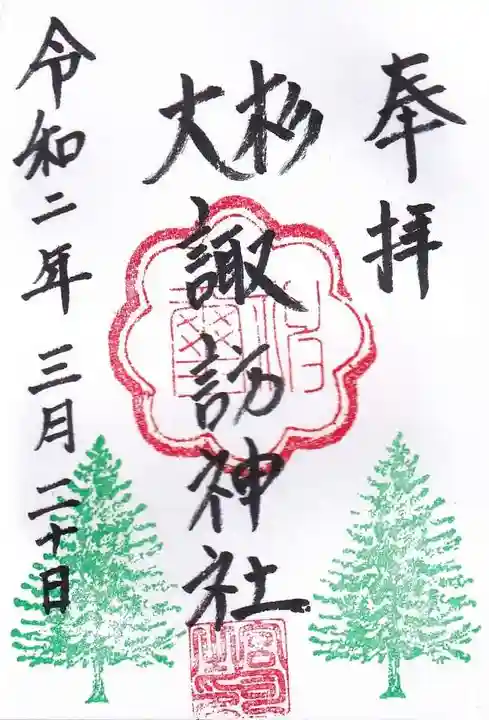 奉拝
大杉
諏訪神社
令和二年 三月 二十日